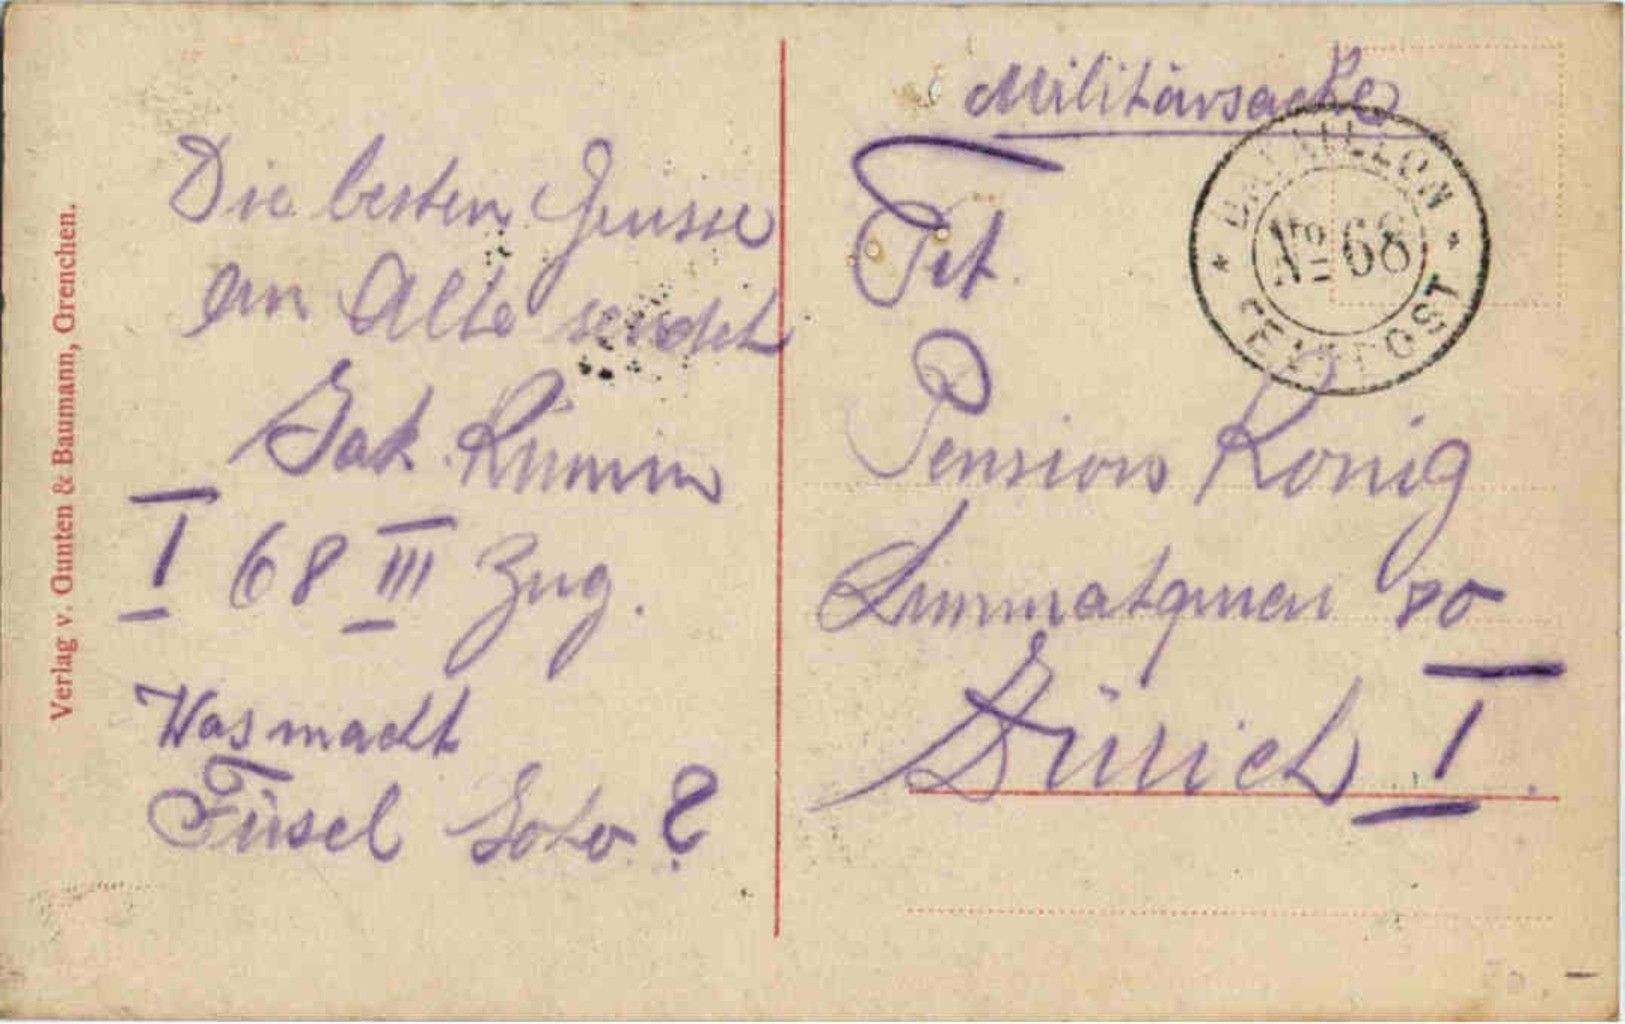 Verlag v. Gunten & Baumann, Grenchen.
Die besten Grüsse
an Alle sendet
Jak. Rümin
I 68 III Zug.
Was macht
Füsel Soto?
Militärsache
Tit.
Pension König
Limmatquai 80
Zürich I.
BATAILLON
No 68
FELDPOST